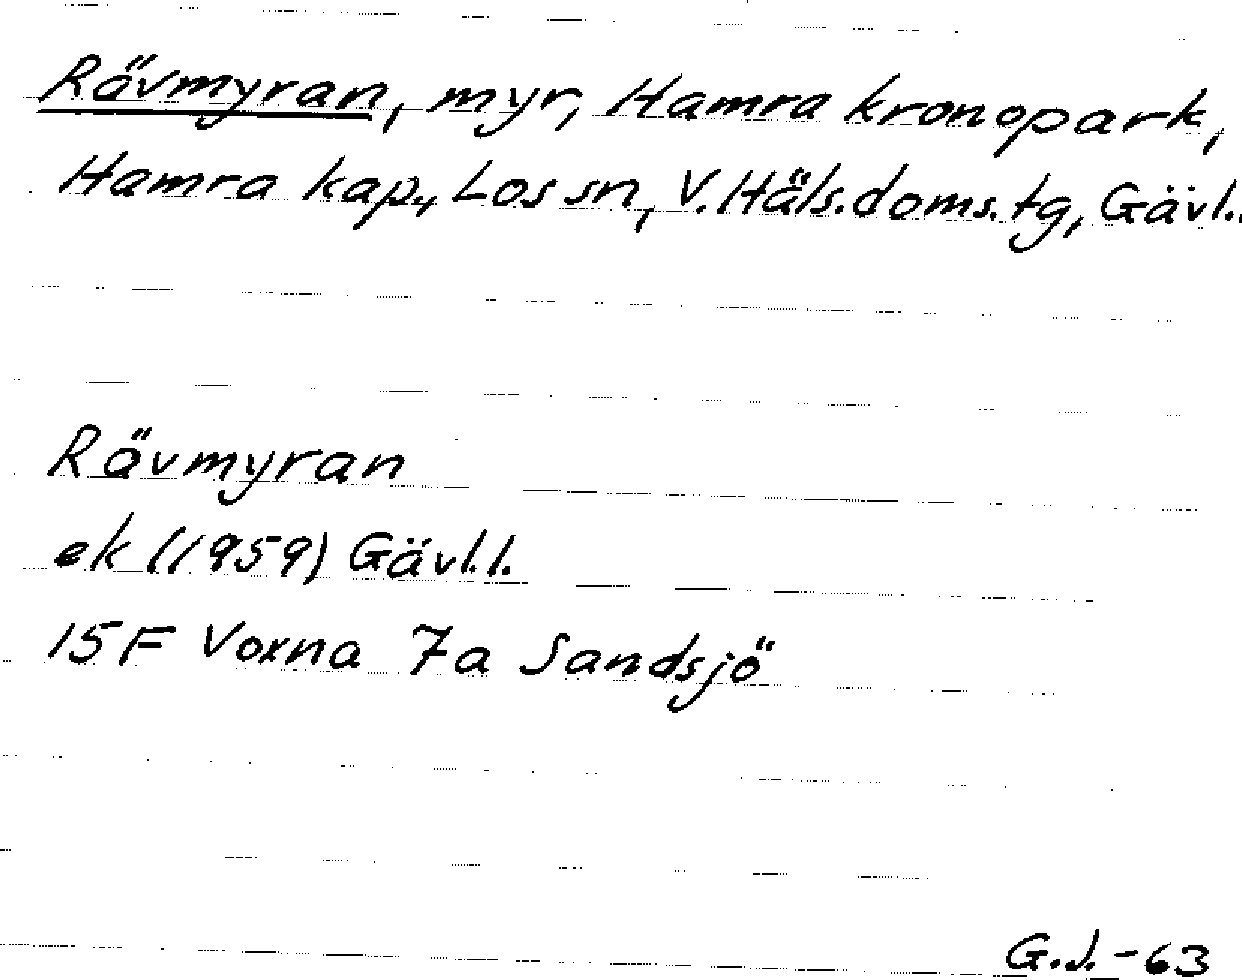 Rävmyran, myr, Hamra kronopark,
Hamra kap., Los sn, V. Häls. doms. tg, Gävl..
Rävmyran
ek (1959) Gävl.l.
15F Voxna 7a Sandsjö
G.J.-63